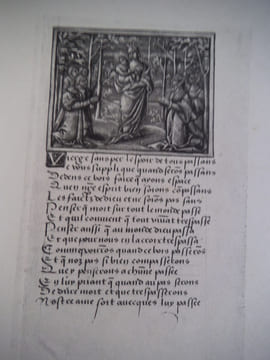 Vierge sans per lespoir de tous passans
e vous supply que quand serõs passans
edens ce bois faire qu ayons espace
Que nr̃e esprit bien soions cõpassans
Les faictz de dieu et ne soiõs pas sans
Penser q̃ mort sur tout le monde passe
Et qu il convient q̃ tout vivãt trespasse
Penser aussi q̃ au mõde dieu passa
Et que pour nous en la croix trespassa
quand ce bois passerõs
Et q̃ noz pas si bien compasserons
Que y penserõs a chũne passee
En luy priant q̃ quand au pas serons
De dure mort et que trespasserons
Nostre ame soit avecques luy passee